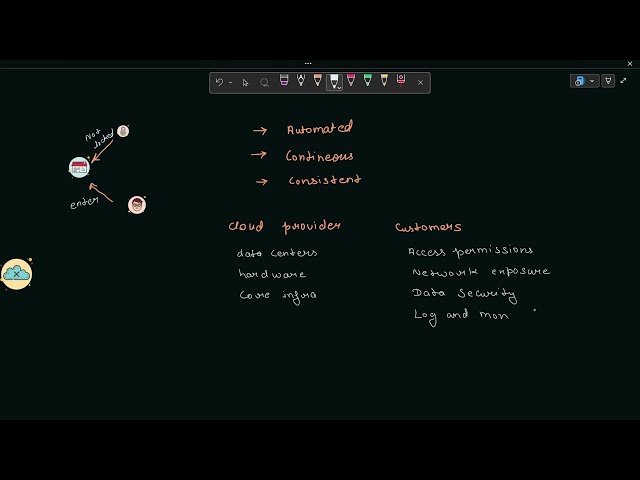 Not locked
enter
→ Automated
→ Contineous
→ Consistent
Cloud provider
data centers
hardware
Core infra
Customers
Access permissions
Network exposure
Data Security
Log and mon